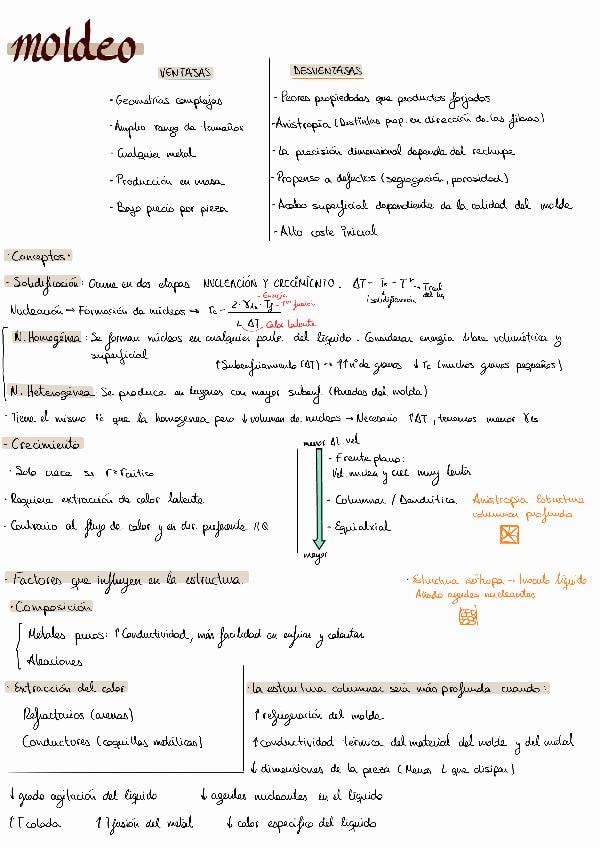 moldeo
VENTAJAS
- Geometrías complejas
- Amplio rango de tamaños
- Cualquier metal
- Producción en masa
- Bajo precio por pieza
DESVENTAJAS
- Peores propiedades que productos forjados
- Anistropía (Distintas prop. en dirección de las fibras)
- La precisión dimensional depende del rechupe
- Propenso a defectos (segregación, porosidad)
- Acabo superficial dependiente de la calidad del molde
- Alto coste inicial
· Conceptos·
- Solidificación: Ocurre en dos etapas NUCLEACIÓN Y CRECIMIENTO. ΔT = Ts - T*
solidificación
Treal del liq
Nucleación → Formación de núcleos → rc = 2·γls·Ts / L ΔT
Energía
Tª fusión
Calor latente
N. Homogénea: Se forman núcleos en cualquier parte del líquido. Considerar energía libre volumétrica y
superficial
↑Subenfriamiento (ΔT) → ↑↑nº de granos ↓rc (muchos granos pequeños)
N. Heterogénea Se produce en lugares con mayor subenf. (Paredes del molde)
· Tiene el mismo rc que la homogenea pero ↓volumen de nucleos → Necesario ↑ΔT, tenemos menor γls
- Crecimiento
· Solo crece si r=rcrítico
· Requiere extracción de calor latente
- Contrario al flujo de calor y en dir. preferente
menor ΔT vel
- Frente plano:
Vel nuclea y crec muy lenta
- Columnar / Dendrítica
- Equiaxial
mayor
Anistropía Estructura
columnar profunda
- Factores que influyen en la estructura.
· Estructura isótropa → Inoculo líquido
Añado agentes nucleantes
· Composición
Metales puros: ↑Conductividad, más facilidad en enfriar y calentar
Aleaciones
· Extracción del calor
Refractarios (arenas)
Conductores (coquillas metálicas)
· La estructura columnar será más profunda cuando:
↑refrigeración del molde
↑conductividad térmica del material del molde y del metal
↓ dimensiones de la pieza (Menos L que disipar)
↓ grado agitación del líquido
↓ agentes nucleantes en el líquido
↑T colada
↑Tfusión del metal
↓ calor específico del líquido